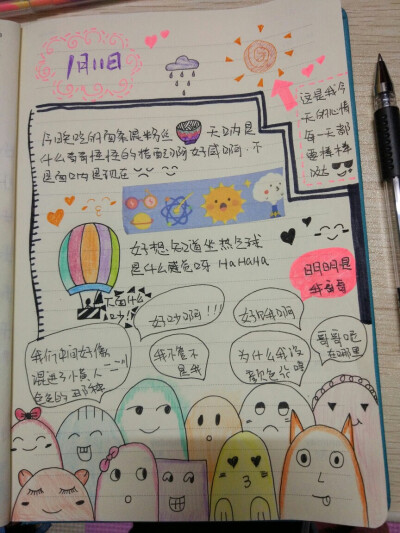 1月11日
这是我今
天的心情
每一天都
要棒棒
哒
今晚吃的面条混粉丝 天呐是
什么奇奇怪怪的搭配啊好咸啊，不
是面呐是现在
好想知道坐热气球
是什么感觉呀 HaHaHa
明明是
我
下面什么
好吵啊！！！
好饿啊
我们中间好像
混进了小黄人
色色的那种
我不是不
是我
为什么我没
颜色分噻
哥哥吧
在哪里